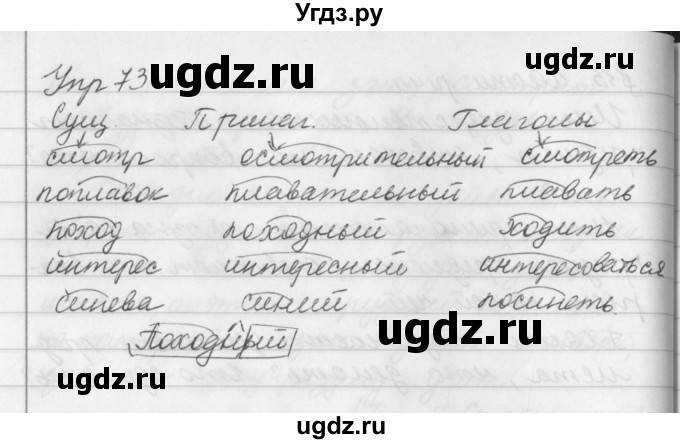 Угдз.ру
Упр 73
Сущ. Прилаг. Глаголы
смотр осмотрительный смотреть
поплавок плавательный плавать
поход походный ходить
интерес интересный интересоваться
синева синий посинеть.
Походный
ugdz.ru
ugdz.ru
ugdz.ru
ugdz.ru
ugdz.ru